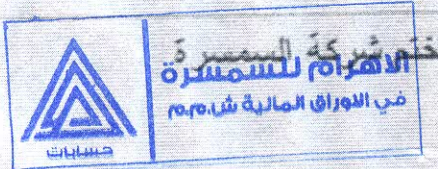 ختم شركة السمسرة
الأهرام للسمسرة
في الاوراق المالية ش.م.م
حسابات